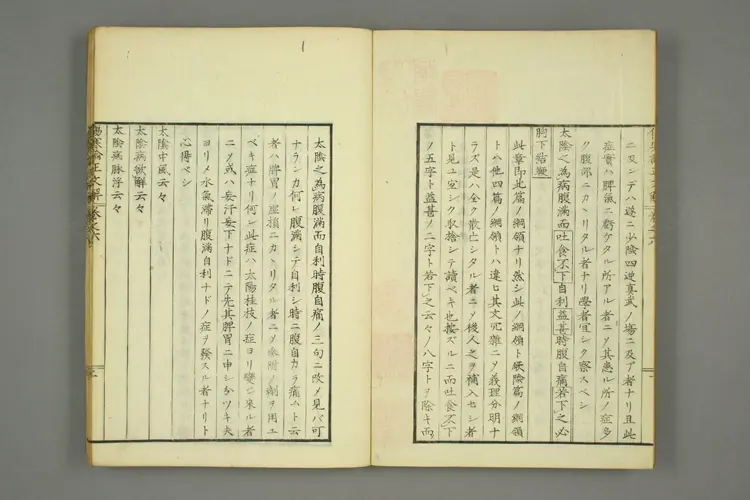 ニ及ンデハ遂ニ少陰四逆真武ノ場ニ及ブ者ナリ且此
症實ハ脾氣ニ虧ケタル所アル者ニソ其患ル所ノ症多
ク腹部ニカヽリタル者ナリ學者宜シク察スベシ
太陰之為病腹満而吐食不下自利益甚時腹自痛若下之必
胸下結鞕
此章即此篇ノ綱領ナリ然シ此ノ綱領ト厥陰篇ノ綱領
トハ他四篇ノ綱領トハ違ヒ其文冗雜ニソ義理分明ナ
ラズ是ハ全ク散亡シタル者ニソ後人之ヲ補入セシ者
ト見ユ宜シク取捨シテ讀ベキ也按ズルニ而吐食不下
ノ五字ト益甚ノ二字ト若下之云々ノ八字トヲ除キ而
太陰之為病腹満而自利時腹自痛ノ三句ニ改メ見バ可
ナランカ何レ腹満シテ自利シ時ニ腹自カラ痛ムト云
者ハ脾胃ノ虚損ニカヽリタル者ニソ参附ノ劑ヲ用ユ
ベキ症ナリ何レ此症ハ太陽桂枝ノ症ヨリ變ジ来ル者
ニソ或ハ妄汗妄下ナドニテ先其脾胃ニ申シ分ツキ夫
ヨリメ水氣滞リ腹満自利ナドノ症ヲ發スル者ナリト
心得ベシ
太陰中風云々
太陰病欲解云々
太陰病脉浮云々
傷寒論正文解 巻之六